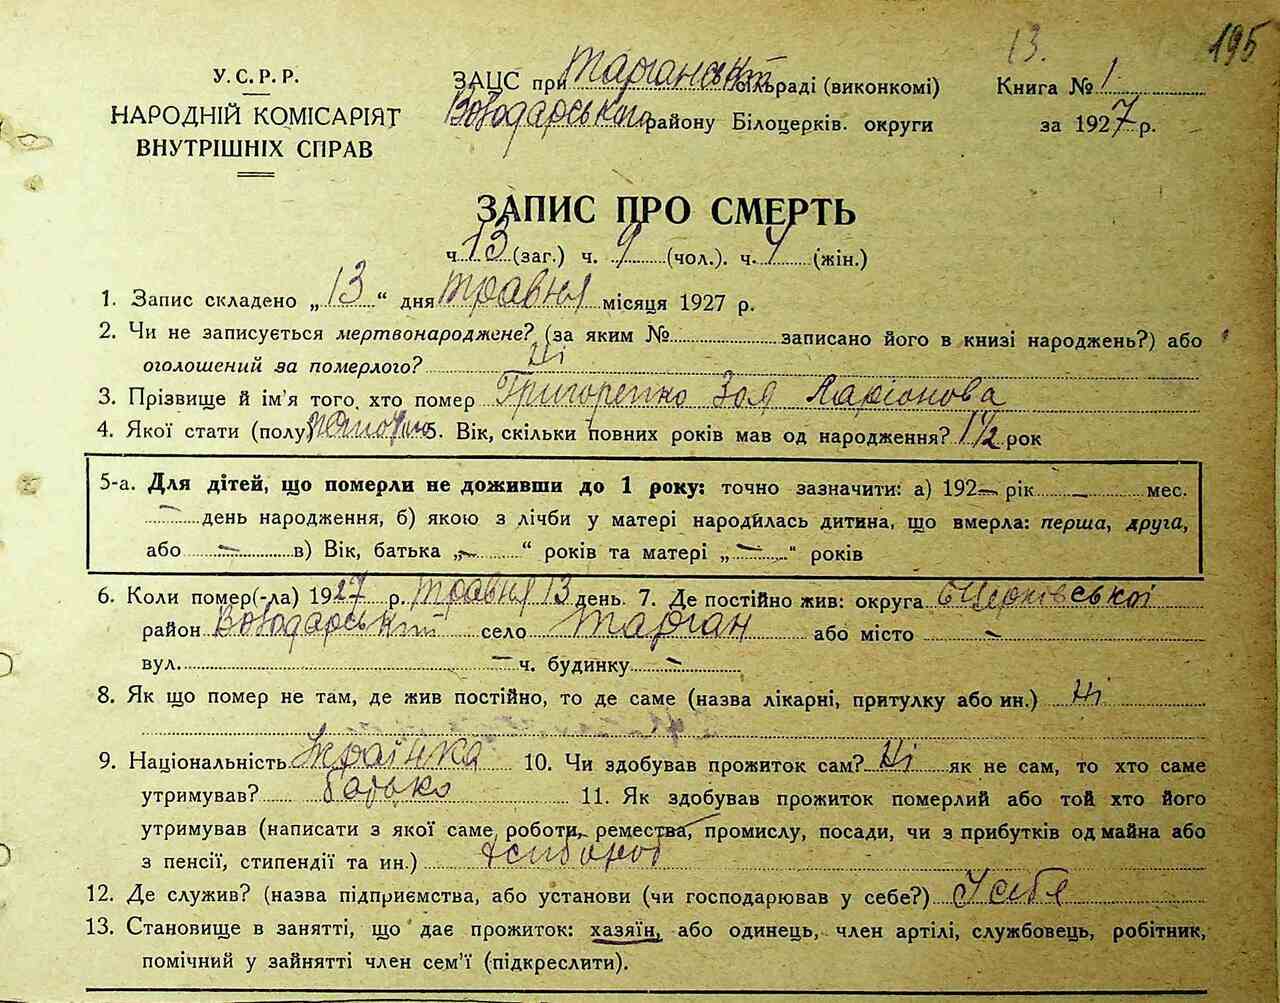 13. 195
У.С.Р.Р.
НАРОДНІЙ КОМІСАРІЯТ
ВНУТРІШНІХ СПРАВ
ЗАЦС при Тарганській сільраді (виконкомі)
Володарського району Білоцерків. округи
Книга № 1
за 1927 р.
ЗАПИС ПРО СМЕРТЬ
ч. 13 (заг.) ч. 9 (чол.). ч. 4 (жін.)
1. Запис складено „13“ дня травня місяця 1927 р.
2. Чи не записується мертвонароджене? (за яким № записано його в книзі народжень?) або
оголошений за померлого? Ні
3. Прізвище й ім'я того, хто помер Григоренко Зоя Ларіонова
4. Якої стати (полу) 5. Вік, скільки повних років мав од народження? 1½ рок
5-а. Для дітей, що померли не доживши до 1 року: точно зазначити: а) 192– рік – мес.
– день народження, б) якою з лічби у матері народилась дитина, що вмерла: перша, друга,
або – в) Вік, батька „–“ років та матері „–“ років
6. Коли помер(-ла) 1927 р. травня 13 день. 7. Де постійно жив: округа БЦерківської
район Володарський село Тарган або місто –
вул. – ч. будинку –
8. Як що помер не там, де жив постійно, то де саме (назва лікарні, притулку або ин.) Ні
9. Національність Українка 10. Чи здобував прожиток сам? Ні як не сам, то хто саме
утримував? батько 11. Як здобував прожиток померлий або той хто його
утримував (написати з якої саме роботи, ремества, промислу, посади, чи з прибутків од майна або
з пенсії, стипендії та ин.) хлібороб
12. Де служив? (назва підприємства, або установи (чи господарював у себе?) У себе
13. Становище в занятті, що дає прожиток: хазяїн, або одинець, член артілі, службовець, робітник,
помічний у зайнятті член сем'ї (підкреслити).